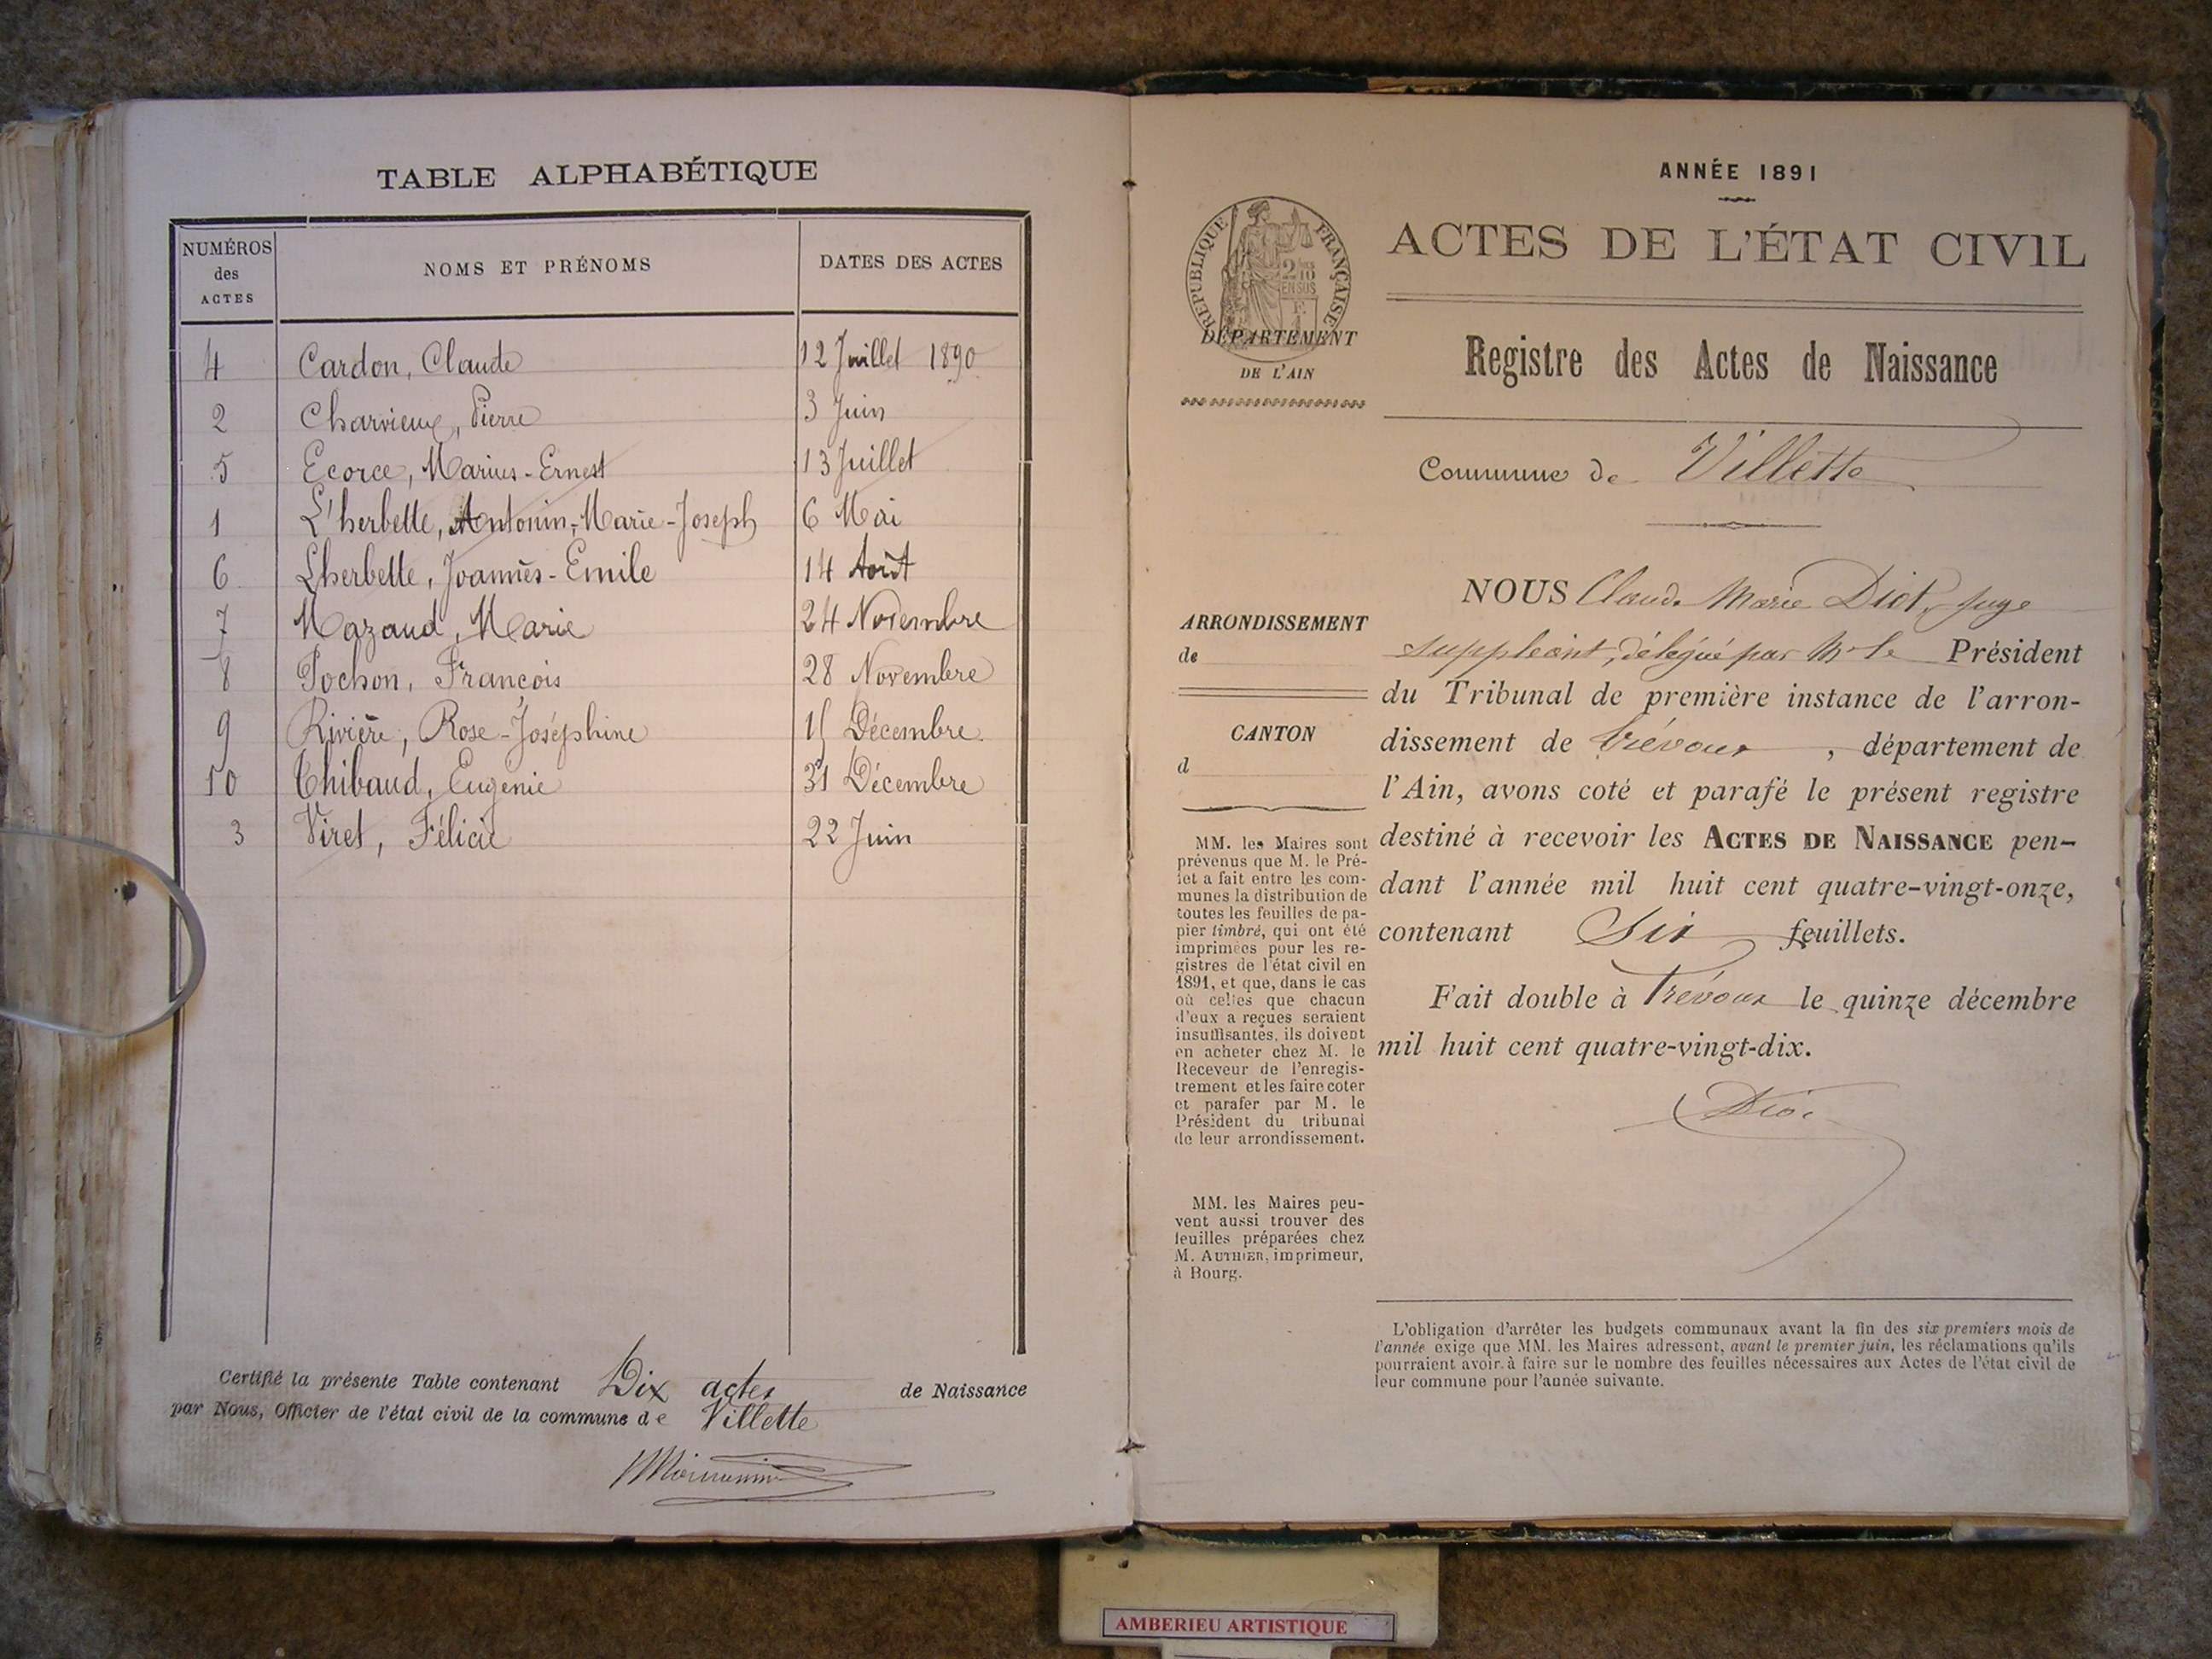 TABLE ALPHABÉTIQUE
NUMÉROS
des
ACTES
NOMS ET PRÉNOMS
DATES DES ACTES
4 Cardon, Claude 12 Juillet 1890
2 Charvieux, Pierre 3 Juin
5 Ecorce, Marius-Ernest 13 Juillet
1 L'herbette, Antonin-Marie-Joseph 6 Mai
6 Lherbette, Joannès-Emile 14 Août
7 Mazaud, Marie 24 Novembre
8 Pochon, François 28 Novembre
9 Rivière, Rose-Joséphine Décembre
10 Thibaud, Eugénie 31 Décembre
3 Viret, Félicie 22 Juin
Certifié la présente Table contenant Dix actes de Naissance
par Nous, Officier de l'état civil de la commune de Villette
ANNÉE 1891
RÉPUBLIQUE FRANÇAISE
2/10
EN SUS
ACTES DE L'ÉTAT CIVIL
DÉPARTEMENT
DE L'AIN
Registre des Actes de Naissance
Commune de Villette
ARRONDISSEMENT
de
CANTON
d
MM. les Maires sont
prévenus que M. le Pré-
fet a fait entre les com-
munes la distribution de
toutes les feuilles de pa-
pier timbré, qui ont été
imprimées pour les re-
gistres de l'état civil en
1891, et que, dans le cas
où celles que chacun
d'eux a reçues seraient
insuffisantes, ils doivent
en acheter chez M. le
Receveur de l'enregis-
trement et les faire coter
et parafer par M. le
Président du tribunal
de leur arrondissement.
MM. les Maires peu-
vent aussi trouver des
feuilles préparées chez
M. AUTHIER, imprimeur,
à Bourg.
NOUS Claude Marie Diot, juge
suppléant, délégué par Mr le Président
du Tribunal de première instance de l'arron-
dissement de Trévoux, département de
l'Ain, avons coté et parafé le présent registre
destiné à recevoir les ACTES DE NAISSANCE pen-
dant l'année mil huit cent quatre-vingt-onze,
contenant Six feuillets.
Fait double à Trévoux le quinze décembre
mil huit cent quatre-vingt-dix.
Diot
L'obligation d'arrêter les budgets communaux avant la fin des six premiers mois de
l'année exige que MM. les Maires adressent, avant le premier juin, les réclamations qu'ils
pourraient avoir à faire sur le nombre des feuilles nécessaires aux Actes de l'état civil de
leur commune pour l'année suivante.
AMBERIEU ARTISTIQUE